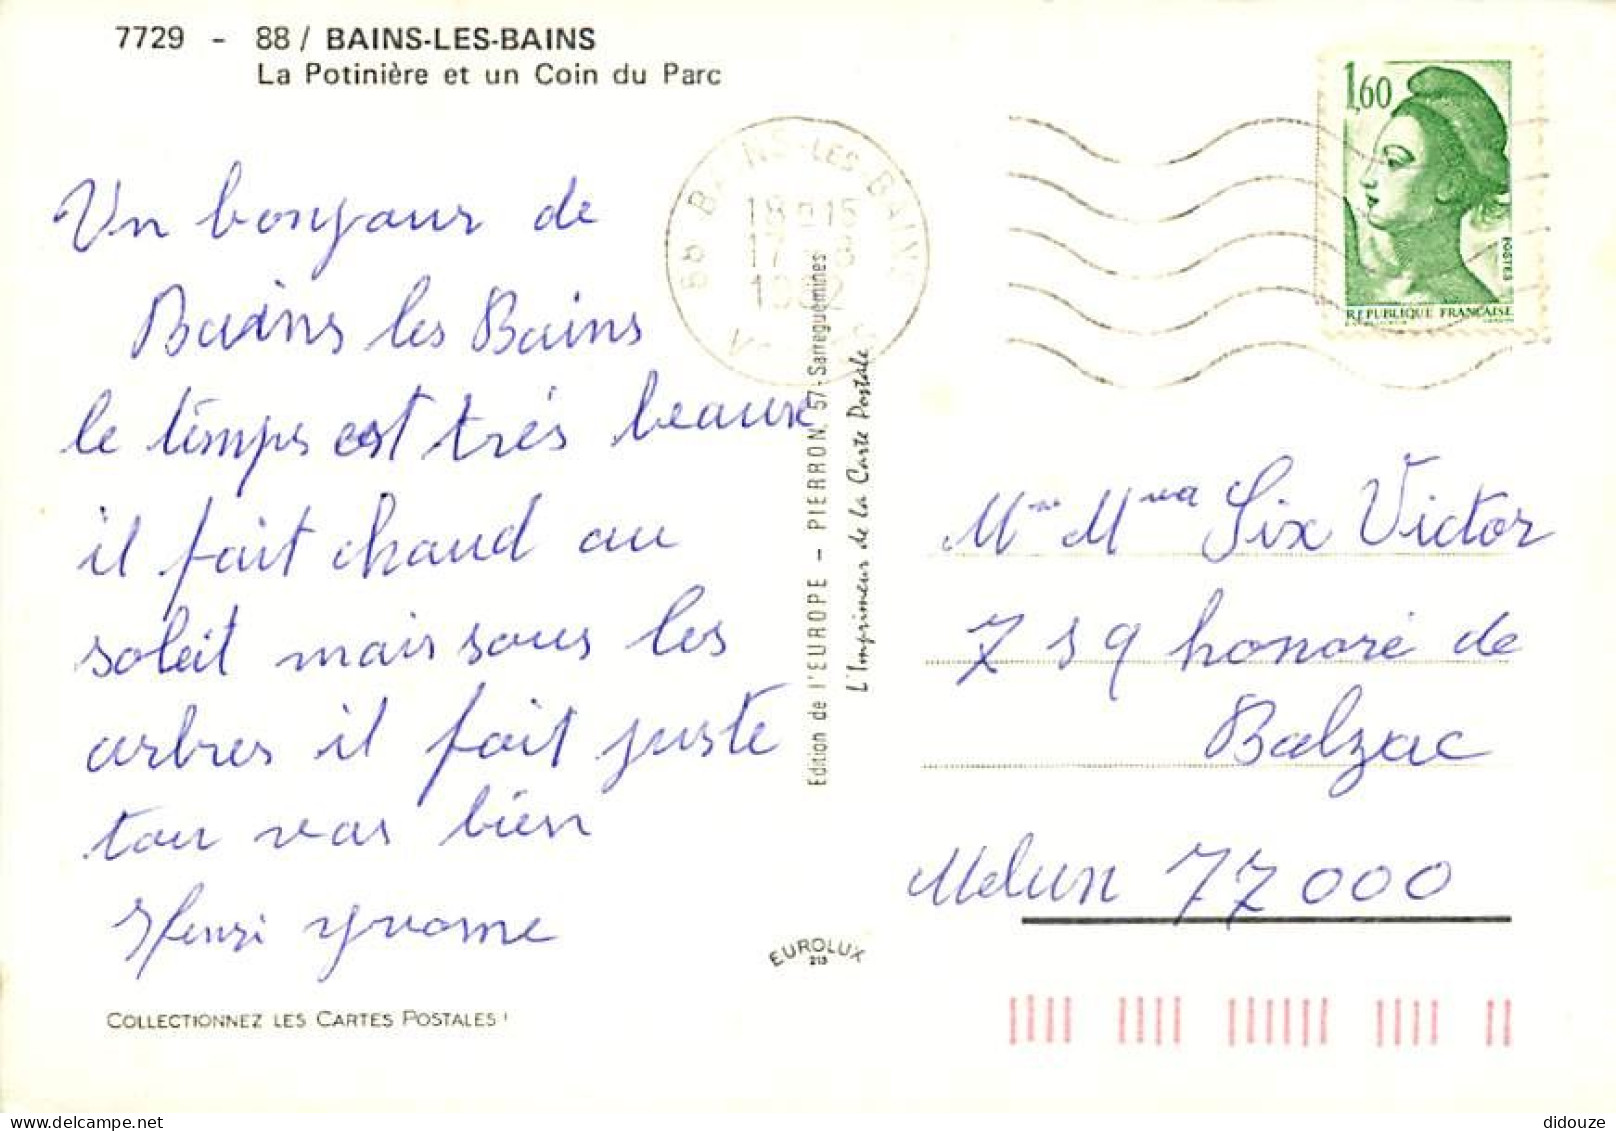 7729 - 88 / BAINS-LES-BAINS
La Potinière et un Coin du Parc
1,60
POSTES
REPUBLIQUE FRANÇAISE
88 BAINS-LES-BAINS
18H15
17 8
1982
Un bonjour de
Bains les Bains
le temps est très beaux
il fait chaud au
soleil mais sous les
arbres il fait juste
tou vas bien
Henri Yvonne
Edition de l'EUROPE - PIERRON, 57 - Sarreguemines
L'Imprimeur de la Carte Postale
Six Victor
7 honoré de
Balzac
Melun 77000
EUROLUX
213
COLLECTIONNEZ LES CARTES POSTALES !
didouze